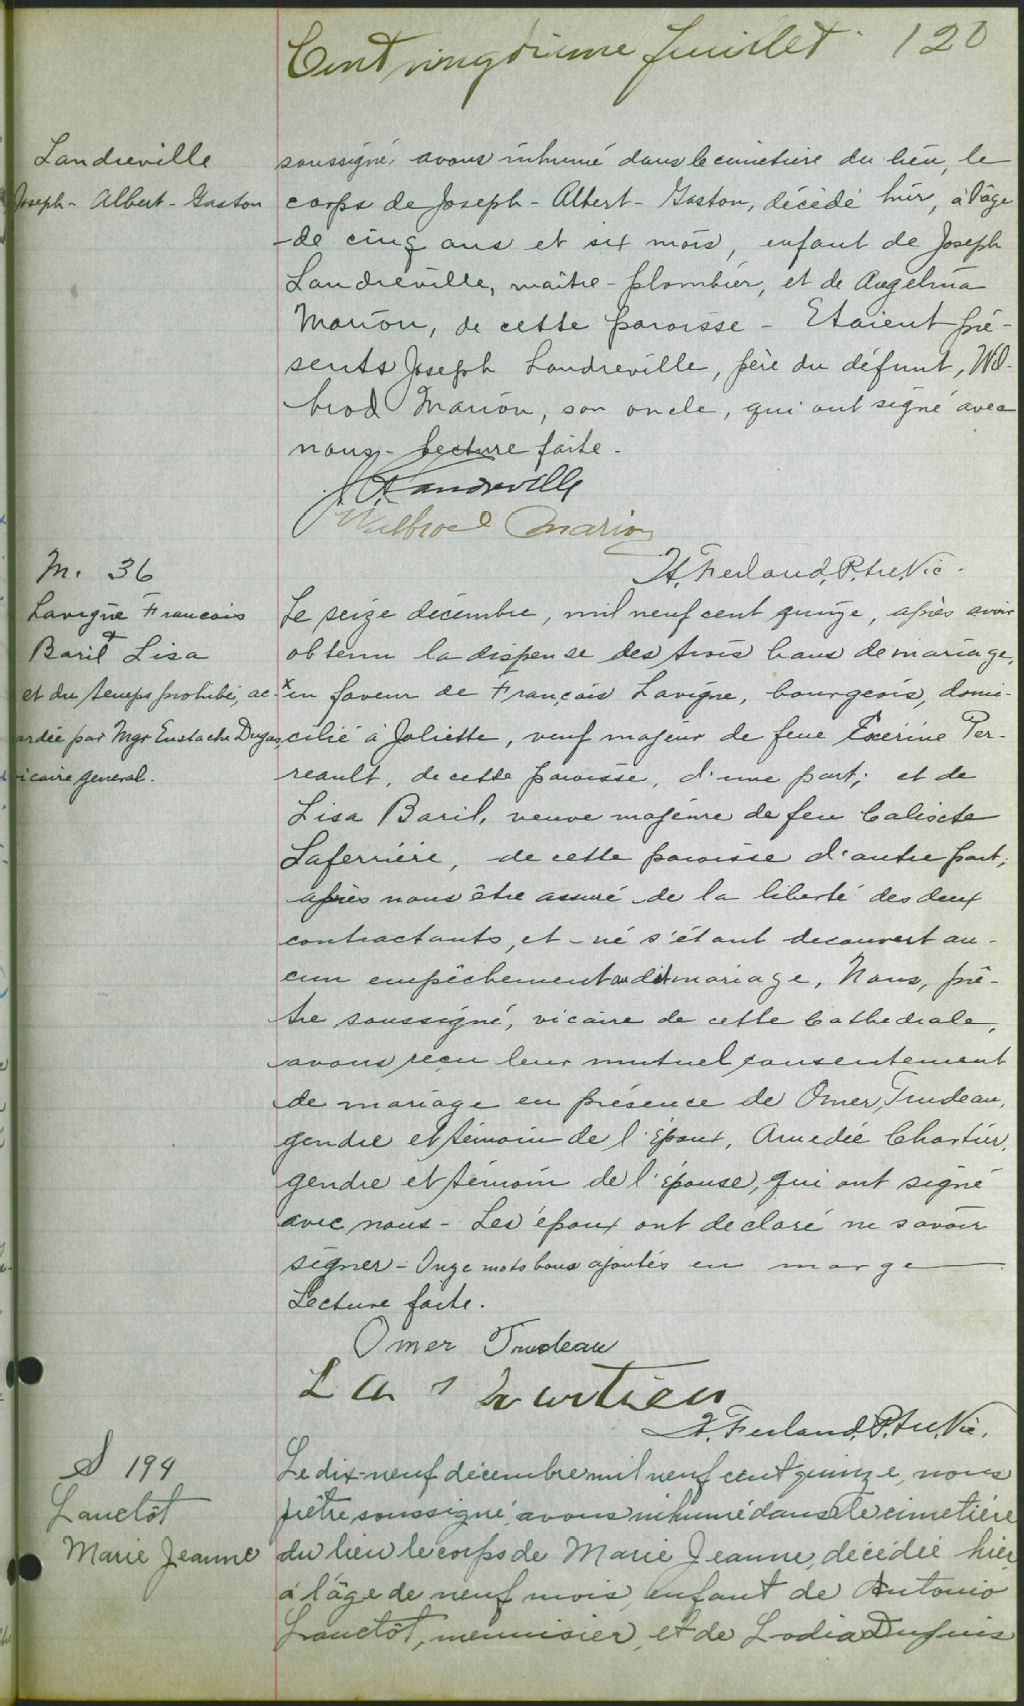 Cent vingtième feuillet. 120
Landreville
Joseph-Albert-Gaston
soussigné, avons inhumé dans le cimetière du lieu, le
corps de Joseph-Albert-Gaston, décédé hier, à l'âge
de cinq ans et six mois, enfant de Joseph
Landreville, maître-plombier, et de Angelina
Marion, de cette paroisse - Etaient pré-
sents Joseph Landreville, père du défunt, Wil-
brod Marion, son oncle, qui ont signé avec
nous - Lecture faite.
J. A. Landreville
Wilbrod Marion
H. Ferland, P.tre, Vic.
M. 36
Lavigne Francois
&
Baril Lisa
et du temps prohibé, ac-
ordée par Mgr Eustache Dugas,
icaire general.
Le seize décembre, mil neuf cent quinze, après avoir
obtenu la dispense des trois bans de mariage,
x en faveur de François Lavigne, bourgeois, domi-
cilié à Joliette, veuf majeur de feue Exérine Per-
reault, de cette paroisse, d'une part; et de
Lisa Baril, veuve majeure de feu Calixte
Laferrière, de cette paroisse d'autre part;
après nous être assuré de la liberté des deux
contractants, et ne s'étant decouvert au-
cun empêchement au dit mariage, Nous, prê-
tre soussigné, vicaire de cette Cathedrale,
avons reçu leur mutuel consentement
de mariage en présence de Omer Trudeau,
gendre et témoin de l'époux, Amedée Chartier,
gendre et témoin de l'épouse, qui ont signé
avec nous - Les époux ont declaré ne savoir
signer - Onze mots bons ajoutés en marge
Lecture faite.
Omer Trudeau
H. Ferland, P.tre, Vic.
S 194
Lanctôt
Marie Jeanne
Le dix-neuf décembre mil neuf cent quinze, nous
prêtre soussigné, avons inhumé dans le cimetière
du lieu le corps de Marie Jeanne, décédée hier
à l'âge de neuf mois, enfant de Antonio
Lanctôt, menuisier, et de Lodia Dupuis